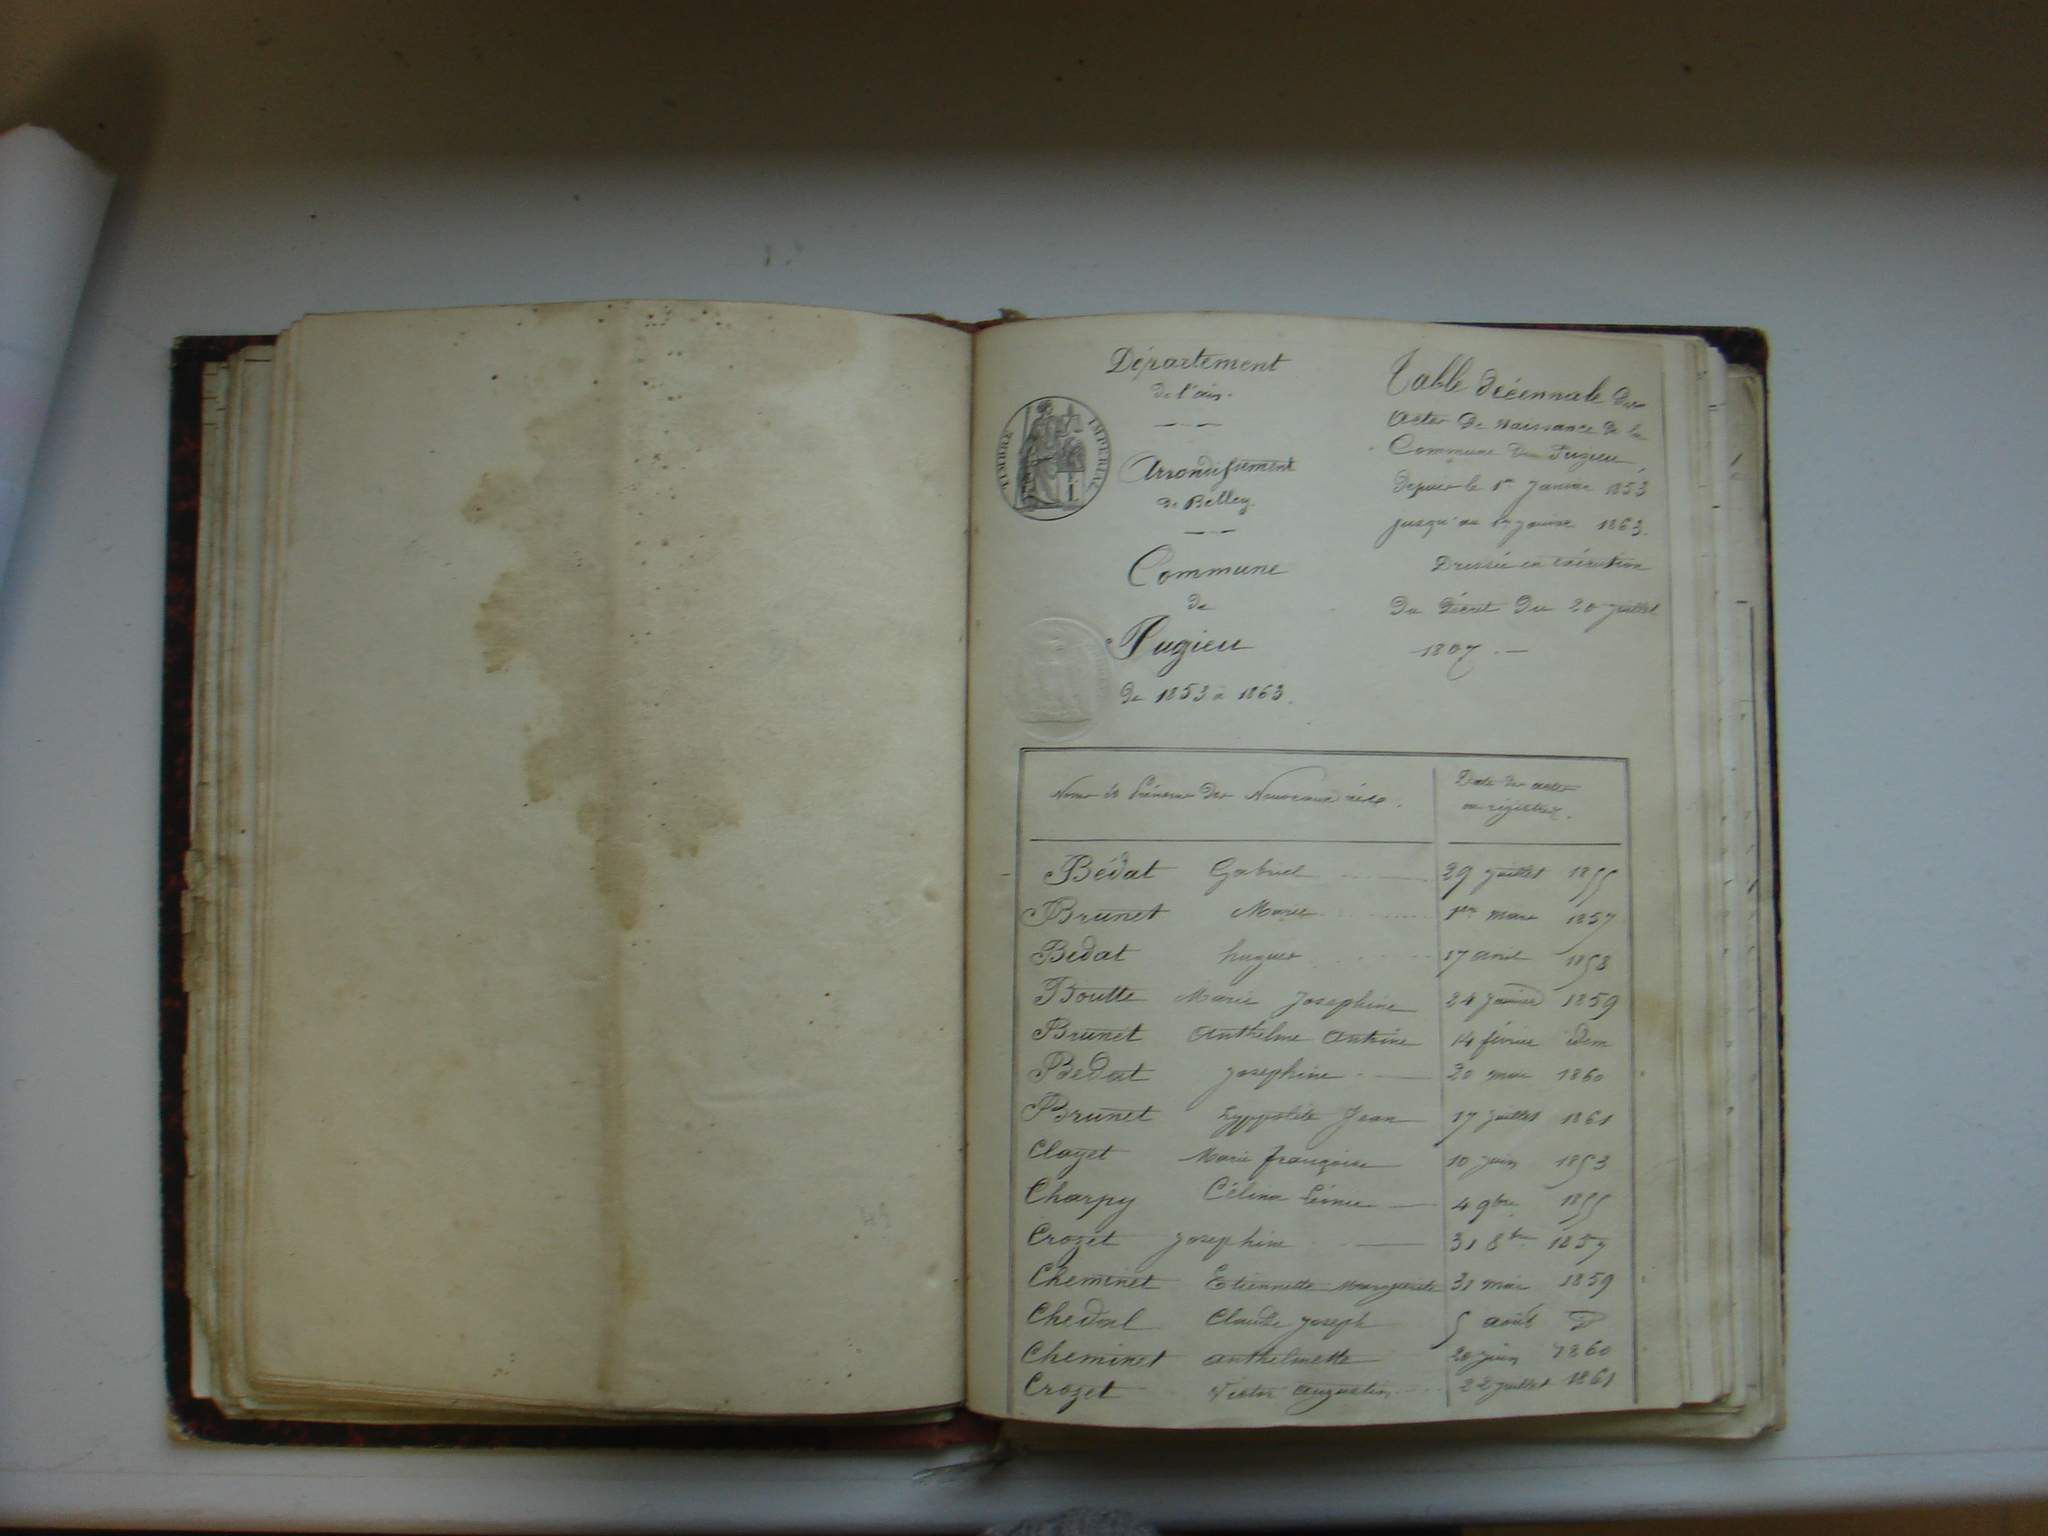 Département
de l'ain.
TIMBRE IMPÉRIAL
Arrondissement
de Belley
Commune
de
Pugieu
de 1853 à 1863.
Table décennale des
actes de naissance de la
Commune de Pugieu,
depuis le 1er Janvier 1853
jusqu'au 1er janvier 1863.
Dressée en exécution
du décret du 20 juillet
1807.
Noms et Prénoms des Nouveaux nés. Date des actes
au registre.
Bédat Gabriel 29 juillet 1855
Brunet Marie 1er mars 1857
Bedat hugues 17 avril 1858
Boutte Marie Josephine 24 janvier 1859
Brunet anthelme antoine 14 février idem
Bedat josephine 20 mai 1860
Brunet hyppolite Jean 17 juillet 1861
Clayet Marie françoise 10 juin 1853
Charpy Célina Léonie 4 9bre 1855
Crozet josephine 31 8bre 1857
Cheminet Etiennette Marguerite 31 mai 1859
Chedal Claude joseph 5 août D
Cheminet anthelmette 20 juin 1860
Crozet Victor augustin 22 juillet 1861